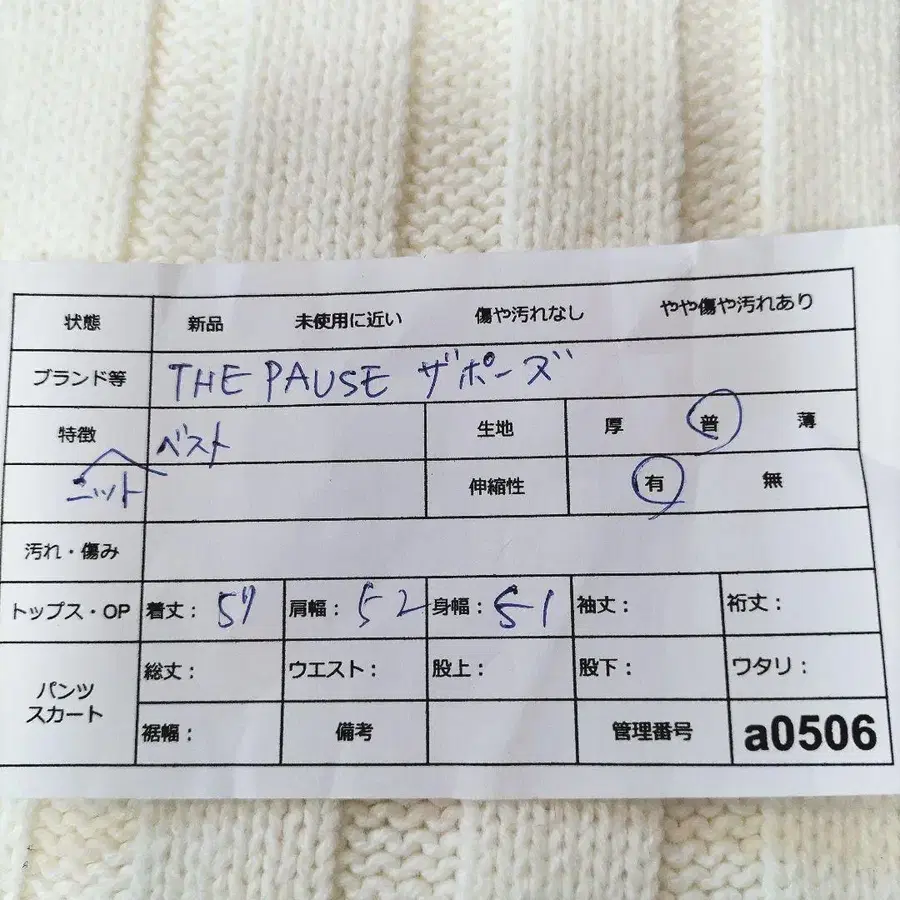 状態 新品 未使用に近い 傷や汚れなし やや傷や汚れあり
ブランド等 THE PAUSE ザポーズ
特徴 ベスト 生地 厚 普 薄
ニット 伸縮性 有 無
汚れ・傷み
トップス・OP 着丈： 57 肩幅： 52 身幅： 51 袖丈： 裄丈：
パンツ スカート 総丈： ウエスト： 股上： 股下： ワタリ：
裾幅： 備考 管理番号 a0506